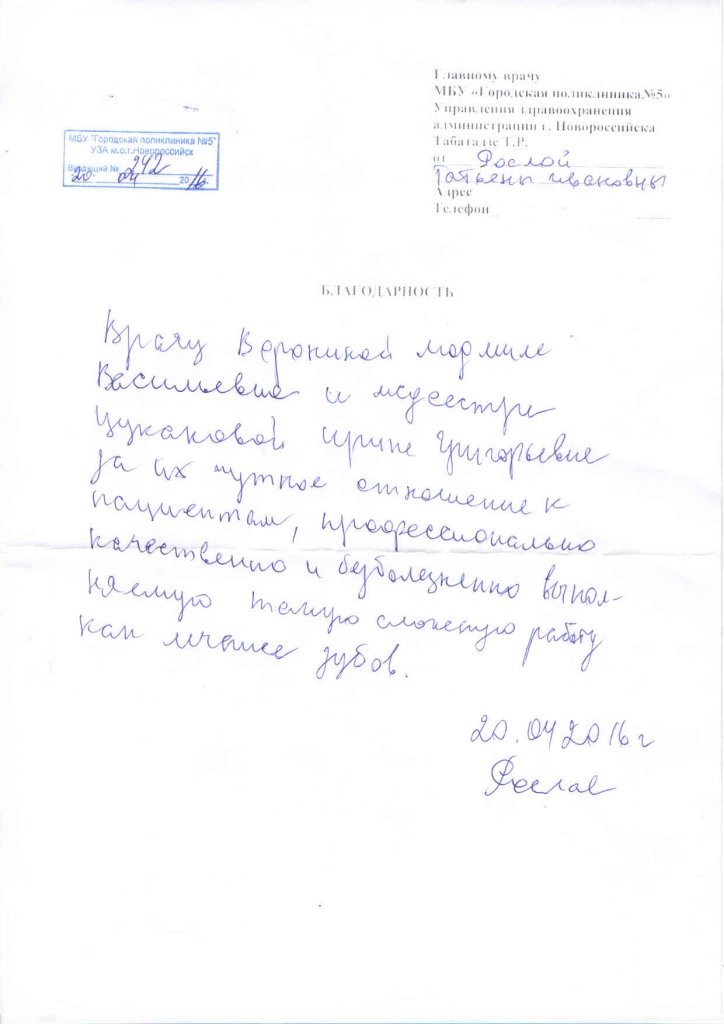 Главному врачу
МБУ «Городская поликлиника№5»
Управления здравоохранения
администрации г. Новороссийска
Табатадзе Т.Р.
от Рослой
Татьены Ивановны
Адрес
Телефон
МБУ "Городская поликлиника №5"
УЗА м.о.г.Новороссийск
Входящий № 242
20. 04 2016
БЛАГОДАРНОСТЬ
Врачу Ворониной Людмиле
Васильевне и медсестре
Цукановой Ирине Григорьевне
за их чуткое отношение к
пациентам, профессионально
качественно и безболезненно выпол-
няемую такую сложную работу
как лечение зубов.
20.04 2016 г
Рослая